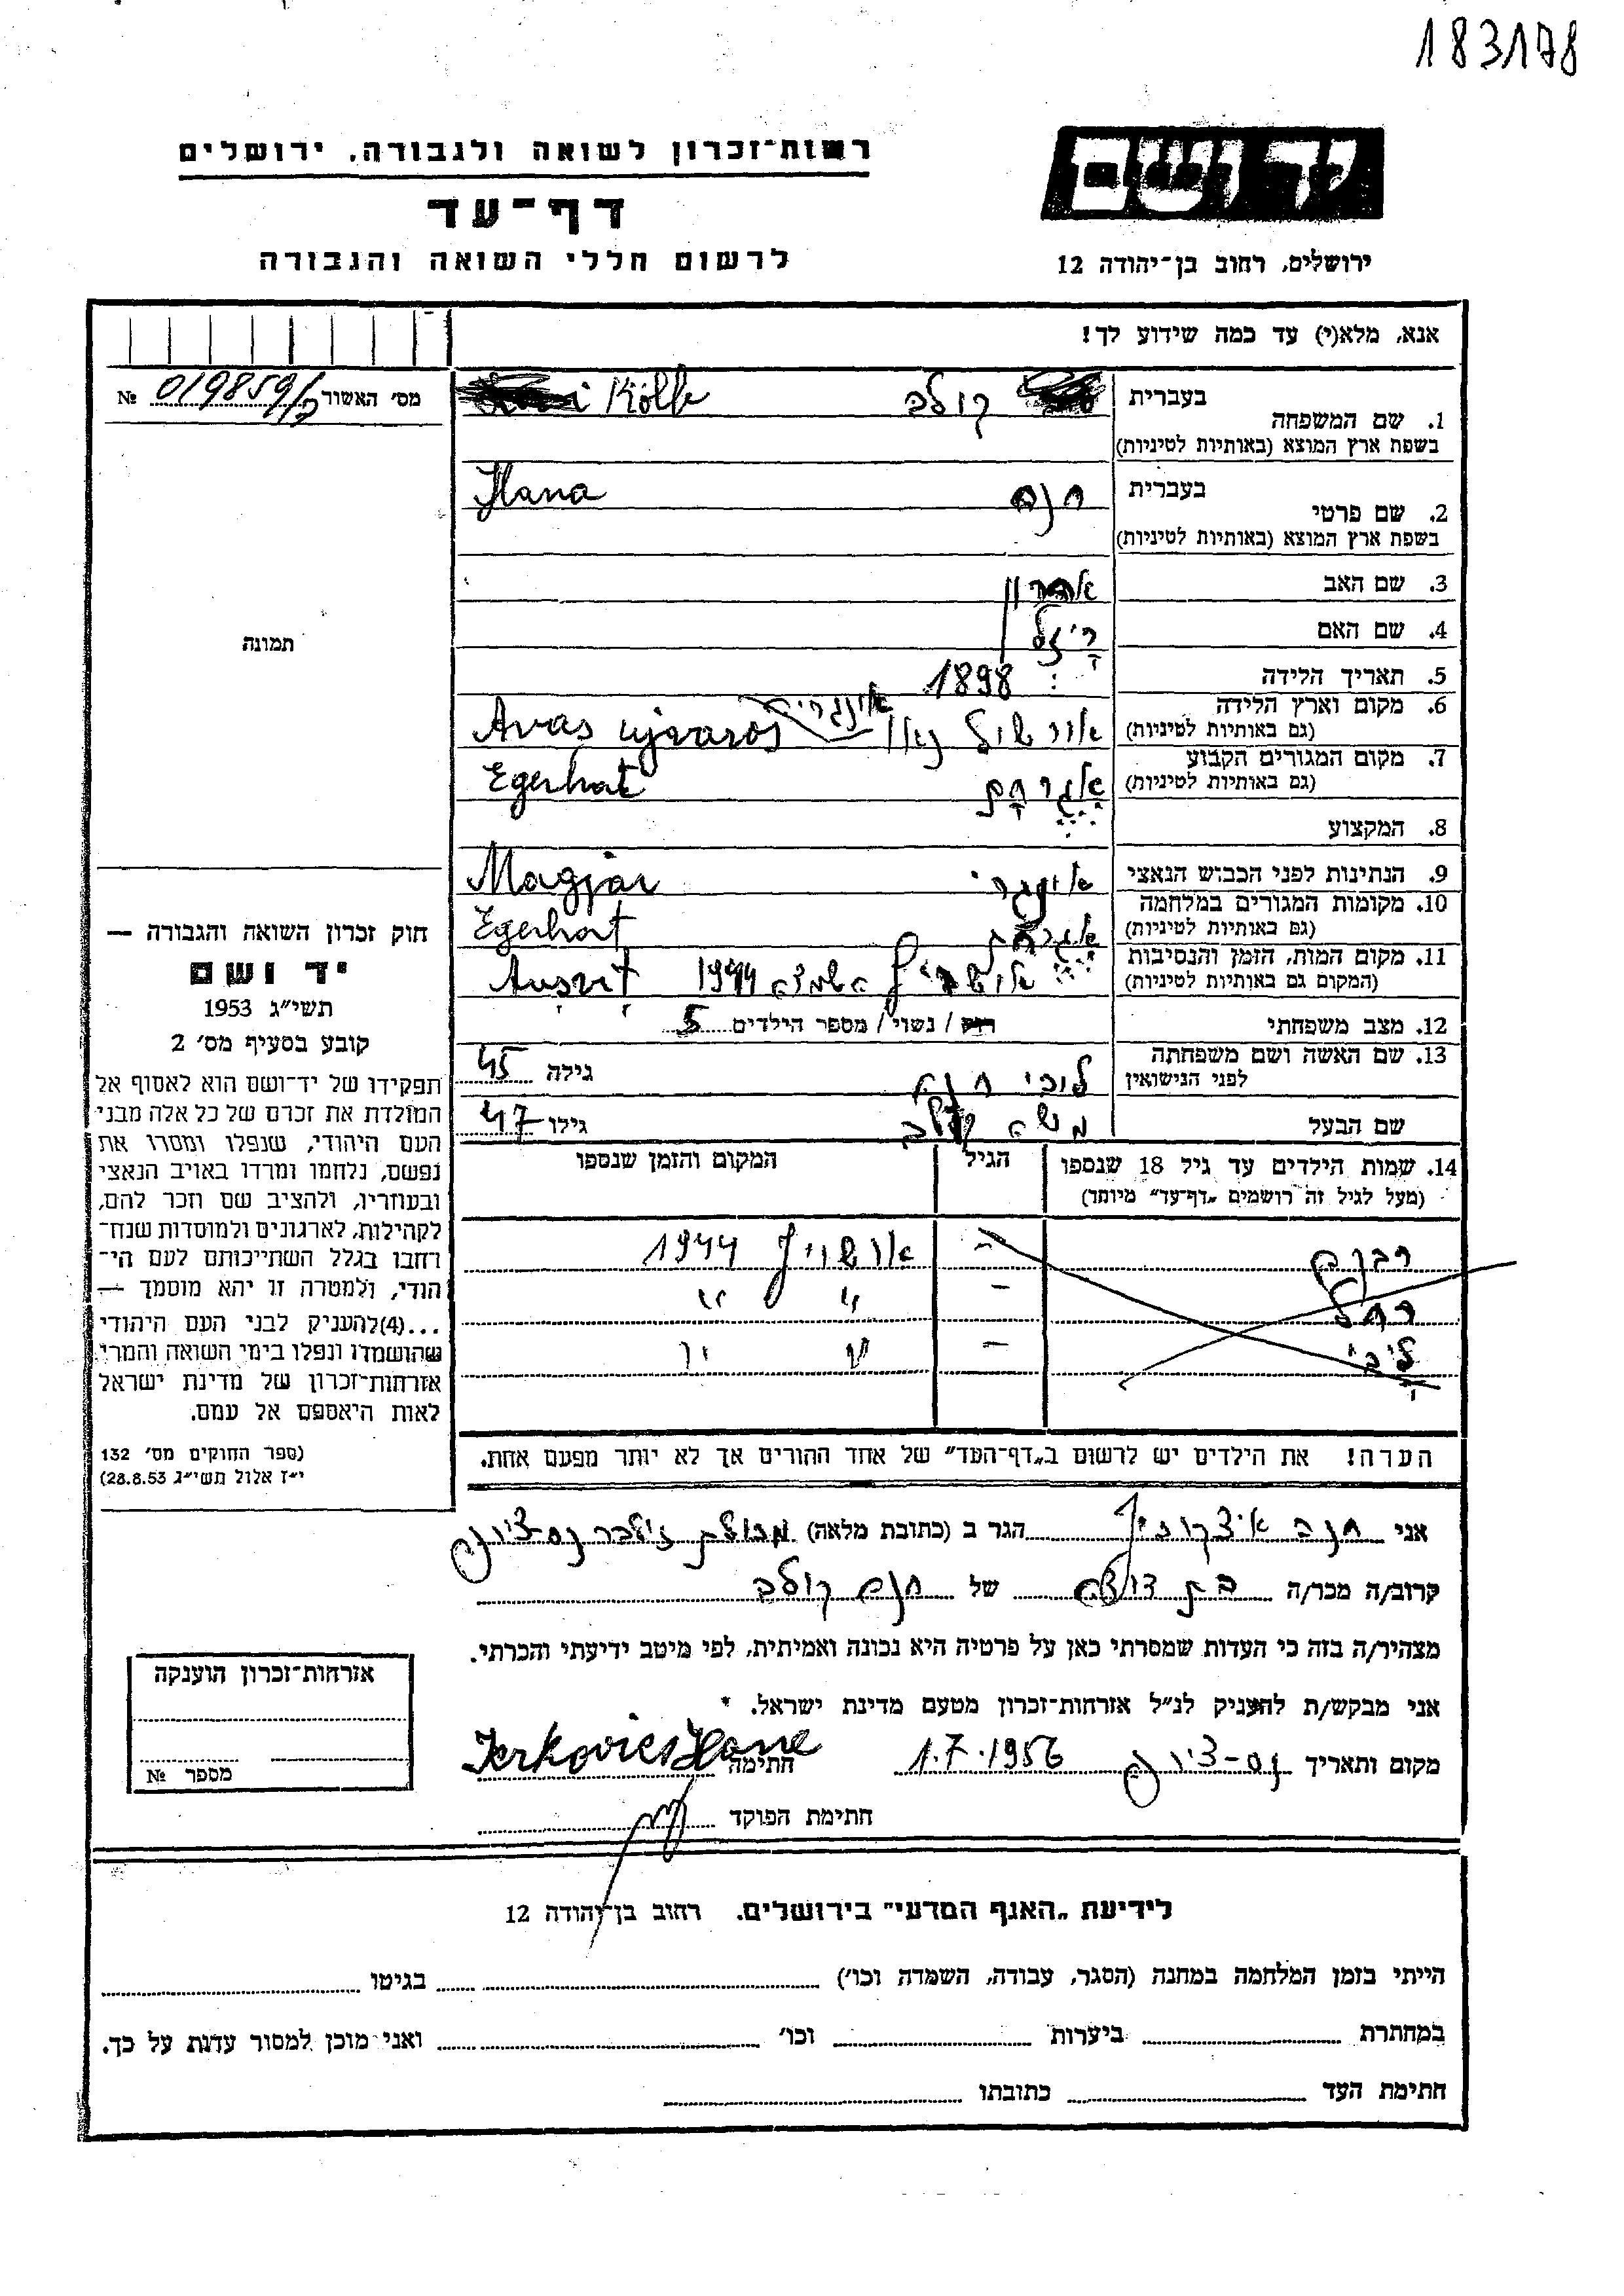 183178
רשות־זכרון לשואה ולגבורה, ירושלים
ידושם
דף־עד
לרשום חללי השואה והגבורה
ירושלים, רחוב בן־יהודה 12
אנא, מלא(י) עד כמה שידוע לך!
מס׳ האשור 019859/ № 
1. שם המשפחה בעברית קולב Kölb
בשפת ארץ המוצא (באותיות לטיניות)
2. שם פרטי בעברית חנה Hana
בשפת ארץ המוצא (באותיות לטיניות)
3. שם האב אהרון
4. שם האם רייזל
תמונה
5. תאריך הלידה 1898
6. מקום וארץ הלידה Avas ujvaros
(גם באותיות לטיניות)
7. מקום המגורים הקבוע אגרהט Egerhat
(גם באותיות לטיניות)
8. המקצוע
9. הנתינות לפני הכבוש הנאצי אונגרי Magjar
10. מקומות המגורים במלחמה אגרהט Egerhat
(גם באותיות לטיניות)
11. מקום המות, הזמן והנסיבות 1944 Ausvit
(המקום גם באותיות לטיניות)
12. מצב משפחתי רוק / נשוי / מספר הילדים 5
13. שם האשה ושם משפחתה לפני הנישואין חנה גילה 45
שם הבעל משה קולב גילו 47
14. שמות הילדים עד גיל 18 שנספו הגיל המקום והזמן שנספו
(מעל לגיל זה רושמים „דף־עד״ מיוחד)
– אושויץ 1944
רחל – " "
ליבי – " "
הערה! את הילדים יש לרשום ב„דף־העד״ של אחד ההורים אך לא יותר מפעם אחת.
חוק זכרון השואה והגבורה —
יד ושם
תשי״ג 1953
קובע בסעיף מס׳ 2
תפקידו של יד־ושם הוא לאסוף אל
המולדת את זכרם של כל אלה מבני
העם היהודי, שנפלו ומסרו את
נפשם, נלחמו ומרדו באויב הנאצי
ובעוזריו, ולהציב שם וזכר להם,
לקהילות, לארגונים ולמוסדות שנח־
רחבו בגלל השתייכותם לעם הי־
הודי, ולמטרה זו יהא מוסמך —
...(4)להעניק לבני העם היהודי
שהושמדו ונפלו בימי השואה והמרי
אזרחות־זכרון של מדינת ישראל
לאות היאספם אל עמם.
(ספר החוקים מס׳ 132
י״ז אלול תשי״ג 28.8.53)
אני חנה איצקוביץ הגר ב (כתובת מלאה) נס-ציונה
קרוב/ה מכר/ה בת דודה של חנה קולב
מצהיר/ה בזה כי העדות שמסרתי כאן על פרטיה היא נכונה ואמיתית, לפי מיטב ידיעתי והכרתי.
אני מבקש/ת להעניק לנ״ל אזרחות־זכרון מטעם מדינת ישראל.
מקום ותאריך נס-ציונה 1.7.1956 חתימה Jerkovics Hane
חתימת הפוקד
אזרחות־זכרון הוענקה
מספר №
לידיעת „האגף המדעי״ בירושלים. רחוב בן־יהודה 12
הייתי בזמן המלחמה במחנה (הסגר, עבודה, השמדה וכו׳) בגיטו
במחתרת ביערות וכו׳ ואני מוכן למסור עדות על כך.
חתימת העד כתובתו